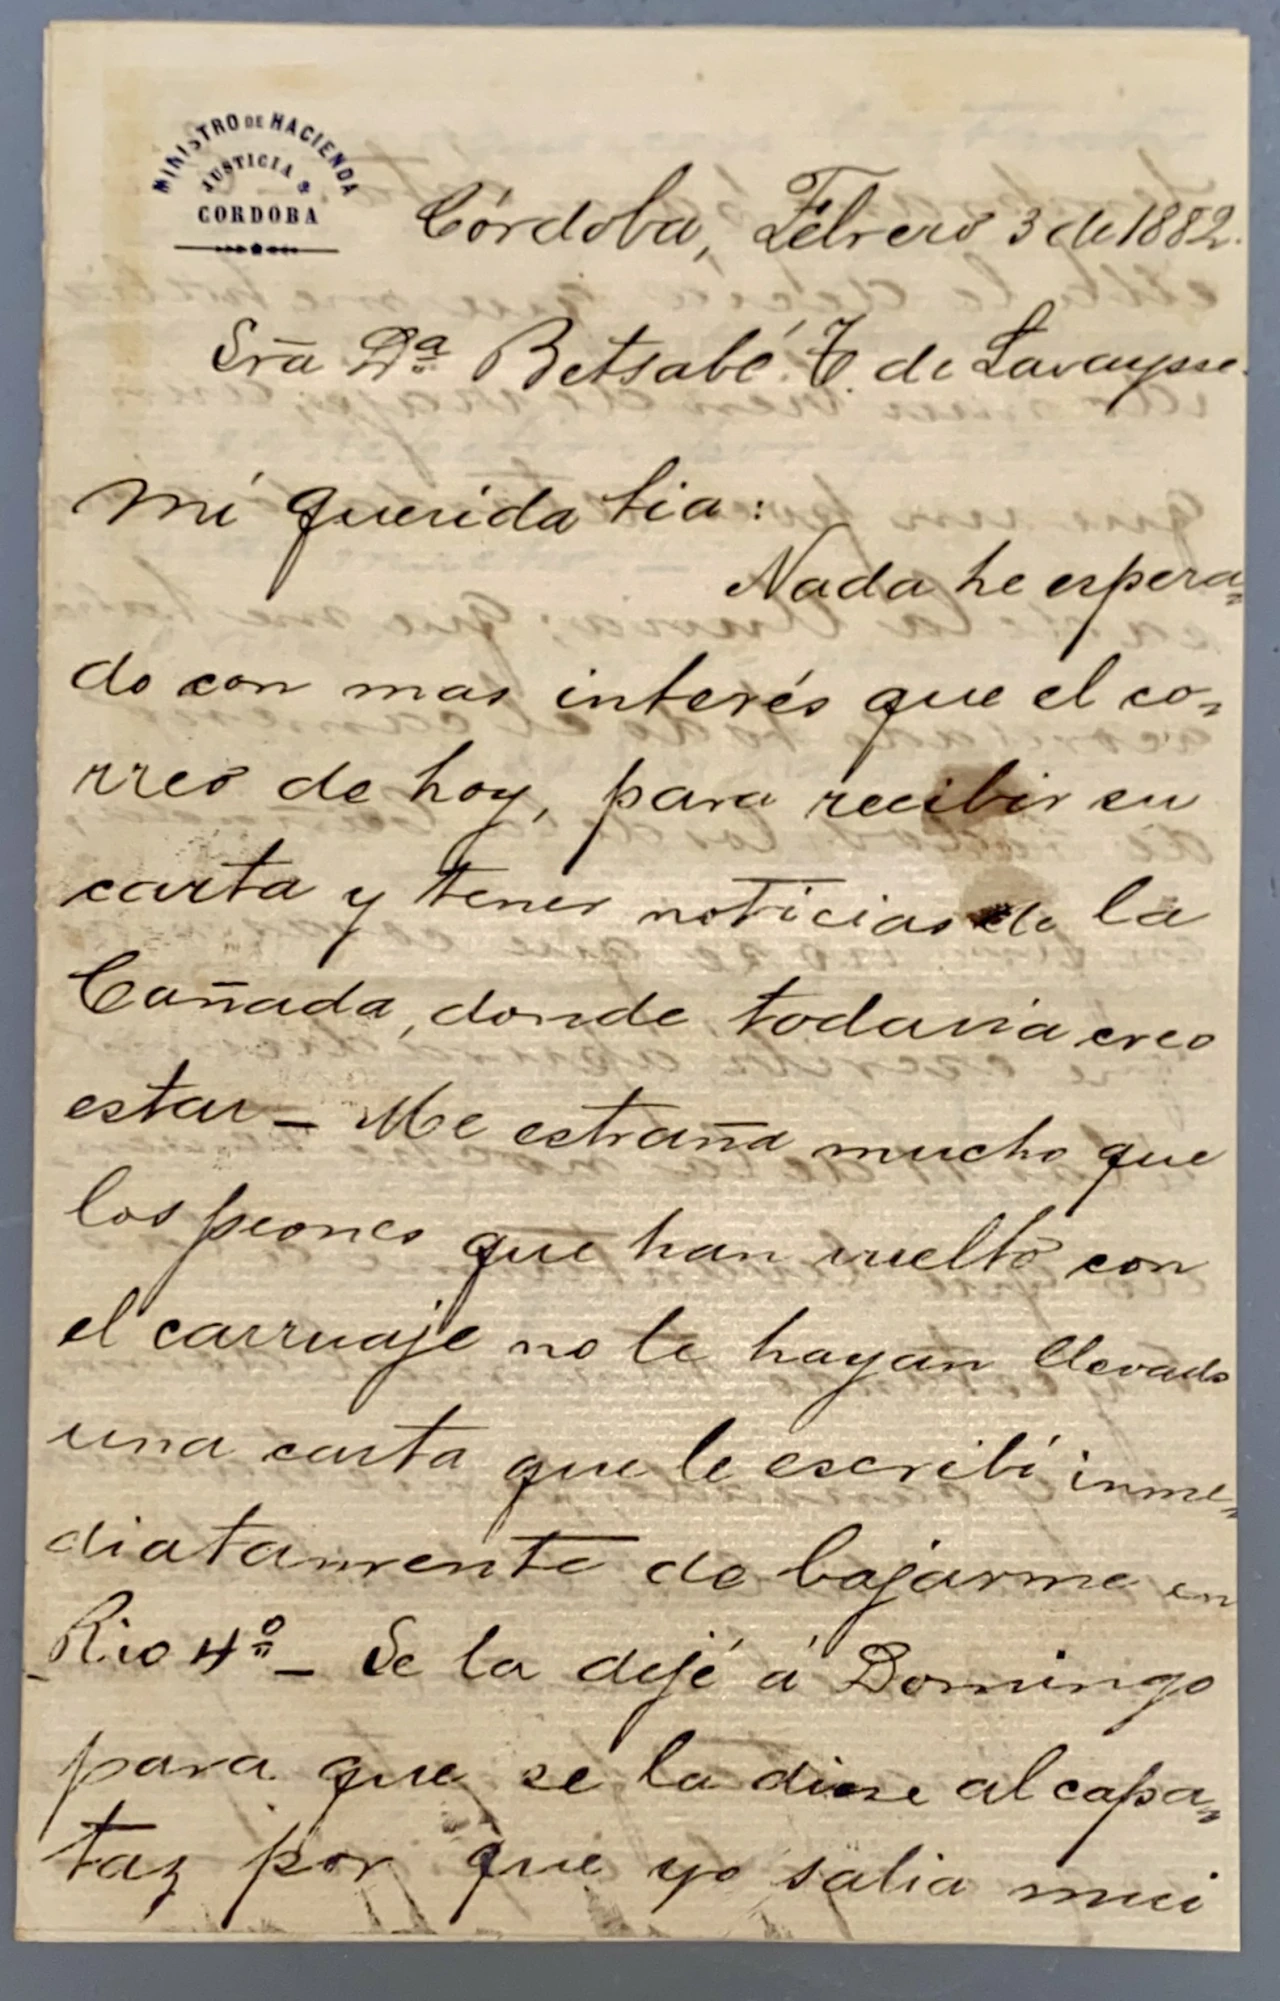 MINISTRO DE HACIENDA
JUSTICIA &
CORDOBA
Córdoba, Febrero 3 de 1882.
Sra Da Betsabé T. de Lavaysse.
Mi querida tia:
Nada he espera=
do con mas interés que el co=
rreo de hoy, para recibir su
carta y tener noticias de la
Cañada, donde todavia creo
estar_ Me estraña mucho que
los peones que han vuelto con
el carruaje no le hayan llevado
una carta que le escribí inme=
diatamente de bajarme en
Rio 4o_ Se la dejé á Domingo
para que se la diese al capa=
taz por que yo salia mui